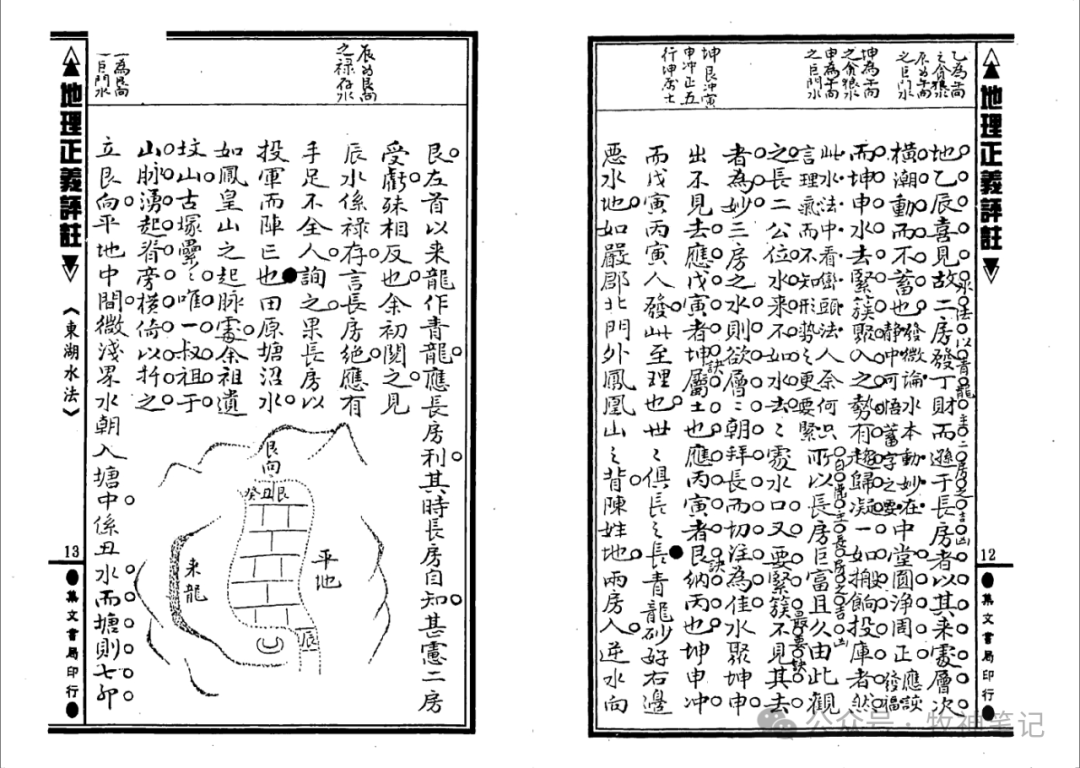 乙為午向
之貪狼水
辰為午向
之巨門水
坤為午向
之貪狼水
申為午向
之巨門水
坤艮冲寅
申冲正五
行坤屬土
地理正義評註
12
集文書局印行
地乙辰喜見故二房發丁財而遜于長房者以其來處層次
水法以青龍主二房之吉凶
橫潮動而不蓄也發微論水本動妙在中堂圓净周正應談
静中可悟蓄字之要發福
而坤申水去緊簇聚入之勢有趨歸凝一如捐餉投庫者然
此水法中看巒頭法人余何只
白虎主長房之吉凶
言理氣而不知形勢之更要緊所以長房巨富且久由此觀
之長二公位水來不如水去之處水口又要緊簇不見其去
最要訣
者為妙三房之水則欲層層朝拜長而切注為佳水聚坤申
出不見去應戊寅者坤屬土也應丙寅者艮納丙也坤申冲
訣
訣
而戊寅丙寅人發此至理也世之俱長之長青龍砂好右邊
惡水地如嚴郡北門外鳳凰山之背陳姓地兩房入逆水向
辰為艮向
之祿存水
一為艮向
一巨門水
地理正義評註
《東湖水法》
13
集文書局印行
艮左首以來龍作青龍應長房利其時長房自知甚憲二房
受虧殊相反也余初閱之見
辰水係祿存言長房絕應有
手足不全人詢之果長房以
投軍而陣亡也田原塘沼水
如鳳皇山之起脉處余祖遺
坟山古塚纍纍唯一叔祖于
山脉湧起脊旁橫倚以折之
立艮向平地中間微淺界水朝入塘中係丑水而塘則七卯
艮向
癸丑艮
平地
來龍
辰
公众号·牧神笔记